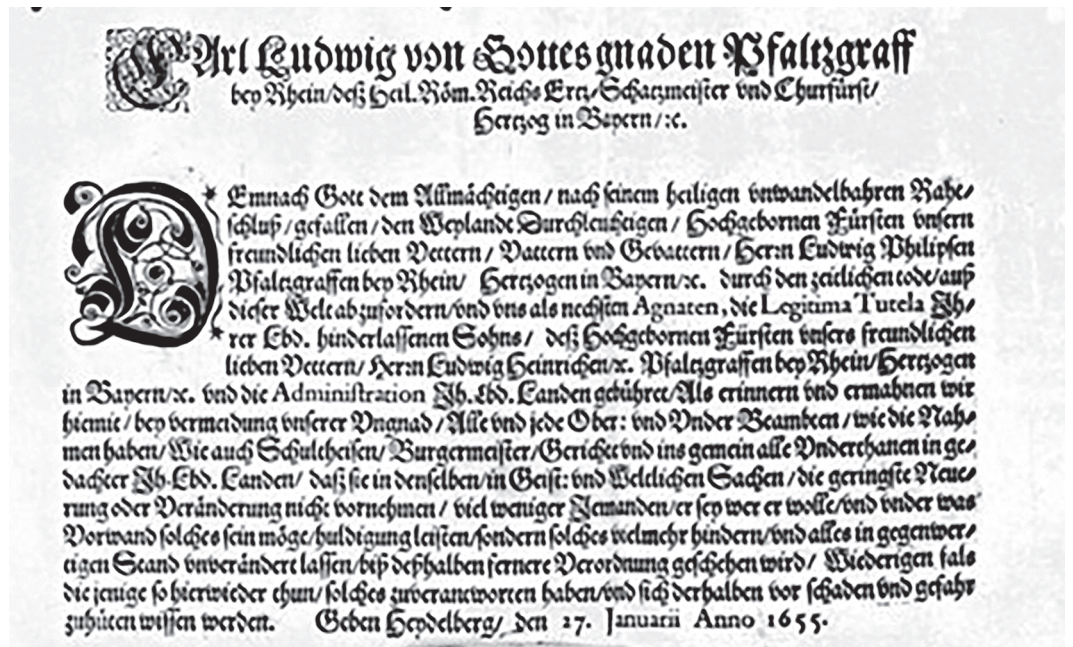 CArl Ludwig von Gottes gnaden Pfaltzgraff
bey Rhein/deß Heil. Röm. Reichs Ertz/Schatzmeister vnd Churfürst/
Hertzog in Bayern/ꝛc.
DEmnach Gott dem Allmächtigen/ nach seinem heiligen vnwandelbahren Raht/
schluß/gefallen/den Weylandt Durchleuchtigen/ Hochgebornen Fürsten vnsern
freundlichen lieben Vettern/ Vattern vnd Gevattern/Herꝛn Ludwig Philipsen
Pfaltzgraffen bey Rhein/ Hertzogen in Bayern/ꝛc. durch den zeitlichen tode/auß
dieser Welt abzufordern/vnd vns als nechsten Agnaten, die Legitima Tutela Ih/
rer Lbd. hinderlassenen Sohns/ deß Hochgebornen Fürsten vnsers freundlichen
lieben Vettern/ Herꝛn Ludwig Heinrichen/ꝛc. Pfaltzgraffen bey Rhein/Hertzogen
in Bayern/ꝛc. vnd die Administration Ih. Lbd. Landen gebühret/Als erinnern vnd ermahnen wir
hiemit/bey vermeidung vnserer Vngnad/Alle vnd jede Ober: vnd Vnder Beambten/wie die Nah/
men haben/Wie auch Schultheisen/Burgermeister/Gericht vnd ins gemein alle Vnderthanen in ge/
dachter Ih. Lbd. Landen/ daß sie in denselben/in Geist: vnd Weltlichen Sachen/die geringste Neue/
rung oder Veränderung nicht vornehmen/ viel weniger Jemanden/er sey wer er wolle/vnd vnder was
Vorwand solches sein möge/huldigung leisten/sondern solches vielmehr hindern/vnd alles in gegenwer/
tigen Stand vnverändert lassen/biß deßhalben fernere Verordnung geschehen wird/ Wiedrigen fals
die jenige so hierwieder thun/solches zuverantworten haben/vnd sich derhalben vor schaden vnd gefahr
zuhüten wissen werden. Geben Heydelberg/ den 27. Januarii Anno 1655.